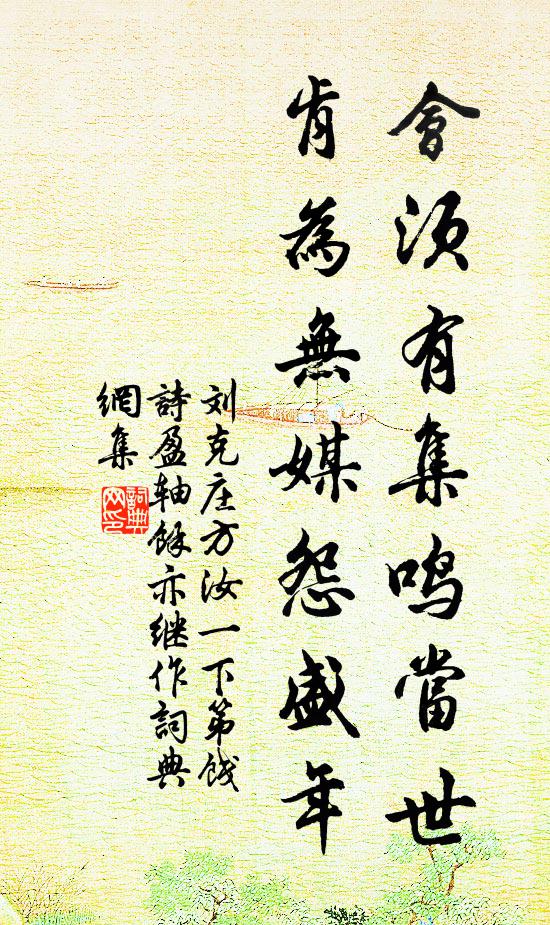 會须有集鸣當世
肯為無媒怨盛年
刘克庄方汝一下第饯
詩盈轴馀亦继作詞典
網集
詞典
网印